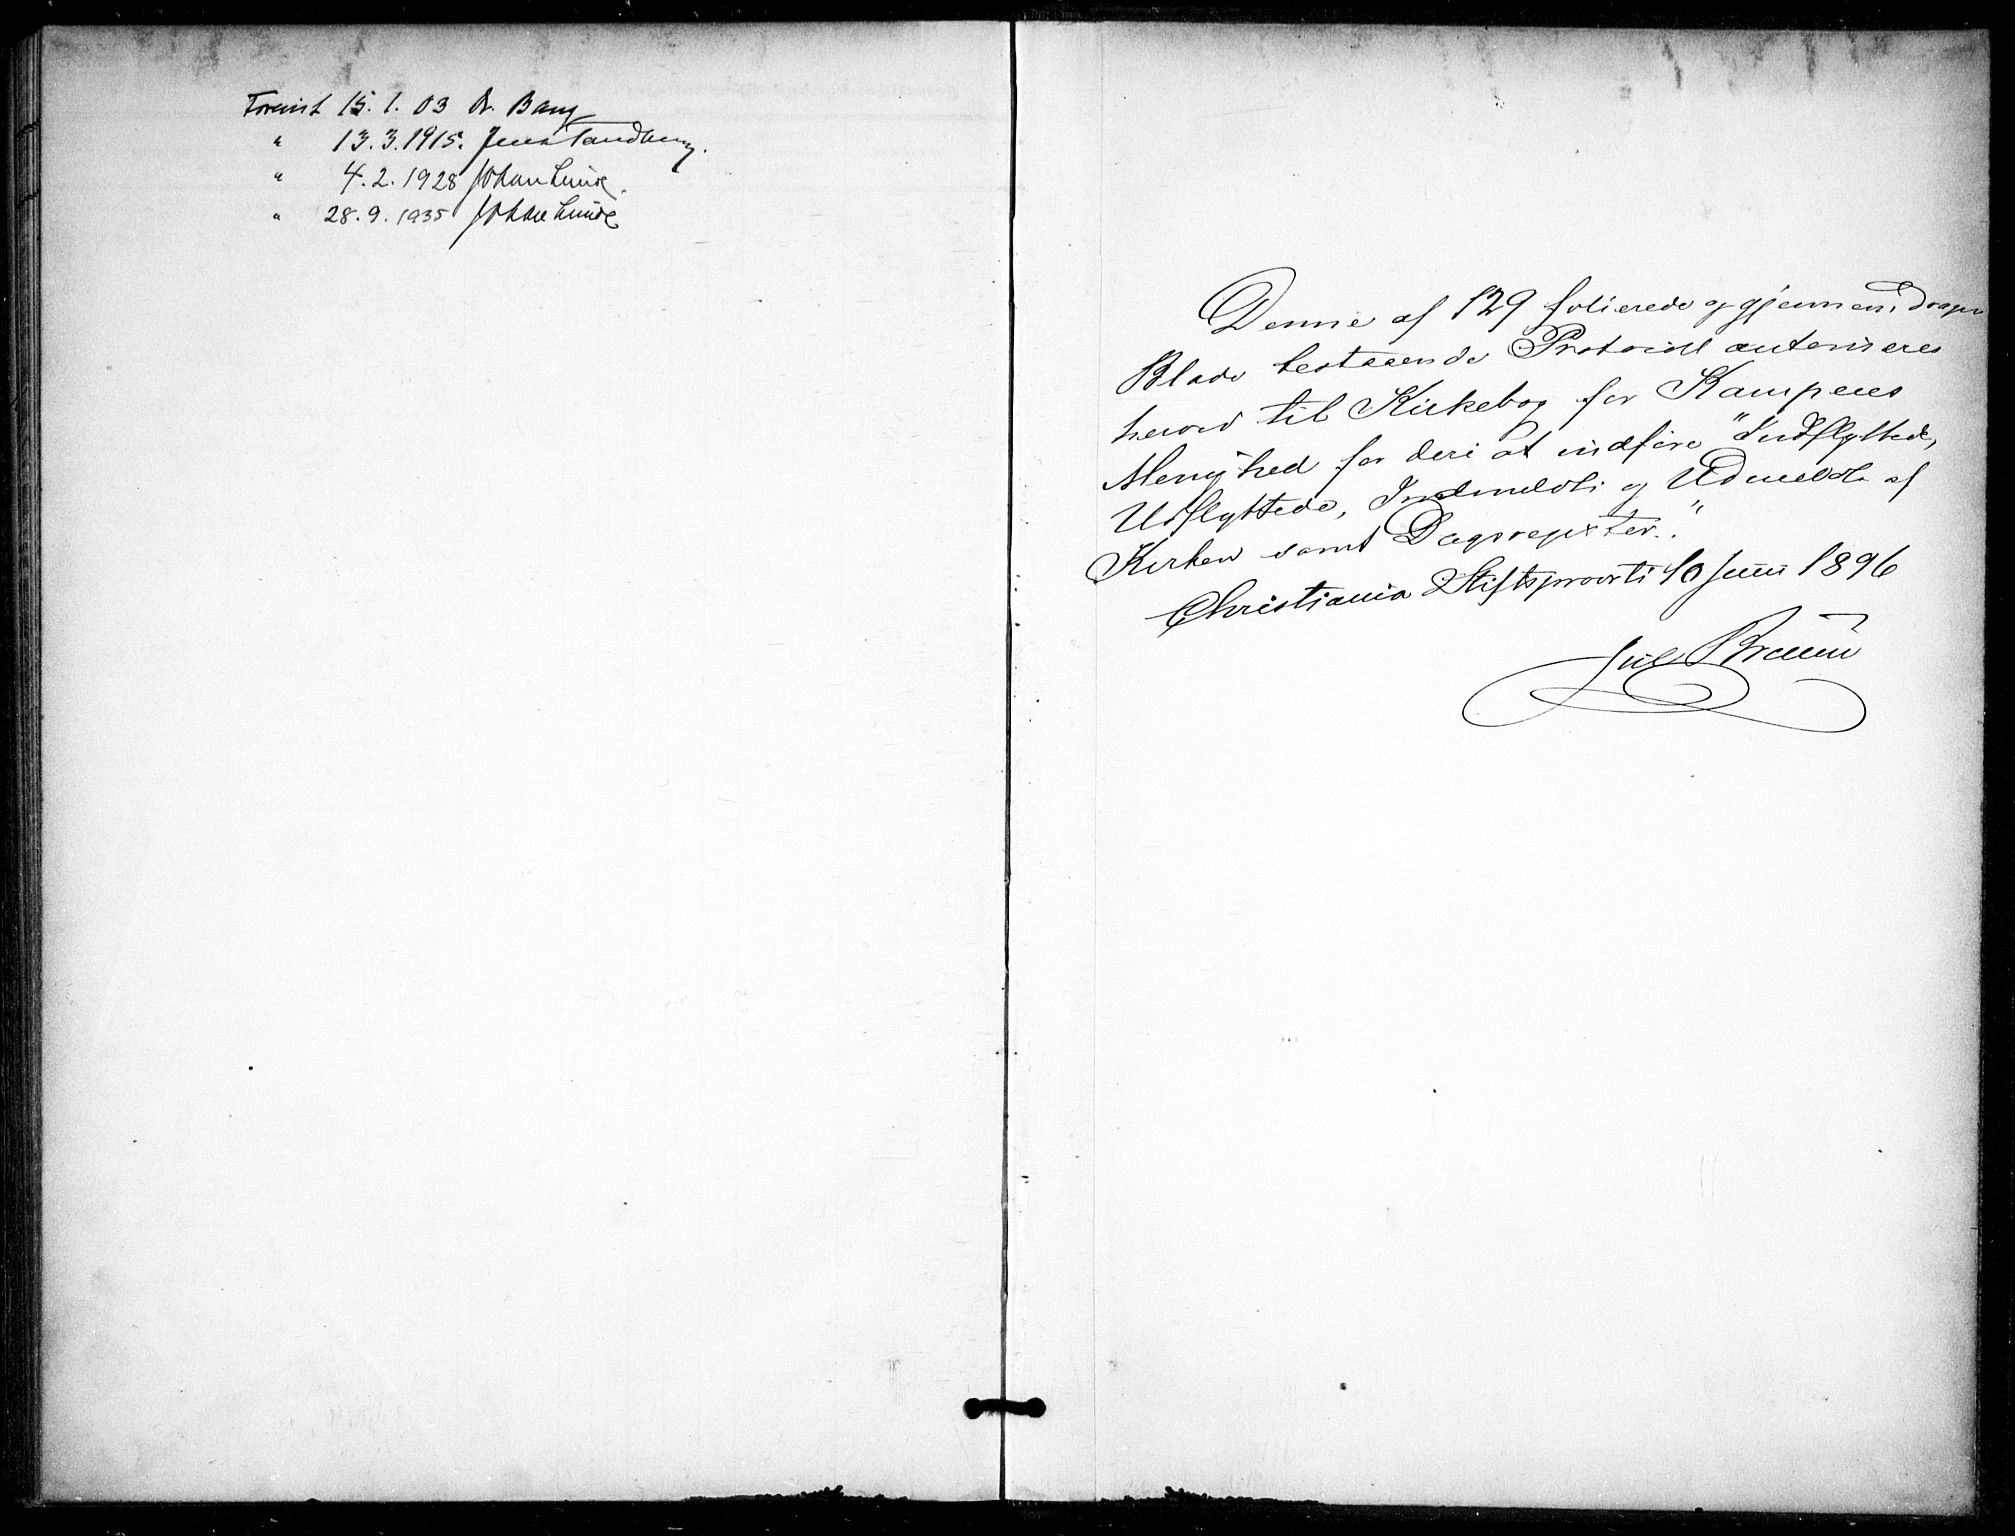 Forevist 15. 1. 03 Dr. Bang
" 13. 3. 1915. Jens Tandberg.
" 4. 2. 1928 Johan Lunde.
" 28. 9. 1935 Johan Lunde
Denne af 129 folierede og gjennemdragne
Blade bestaaende Protocol autoriseres
herved til Kirkebog for Kampens
Menighed for deri at indføre "Indflyttede,
Udflyttede, Indmeldte og Udmeldte af
Kirken samt Dagsregister."
Christiania Stiftsprovsti 10 Juni 1896
Jul Bruun